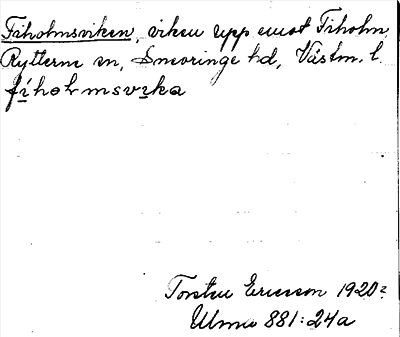 Fiholmsviken, viken upp emot Fiholm,
Rytterne sn, Snevringe hd, Västm. l.
fiholmsvika
Torsten Ericsson 1920?
Ulma 881:24a